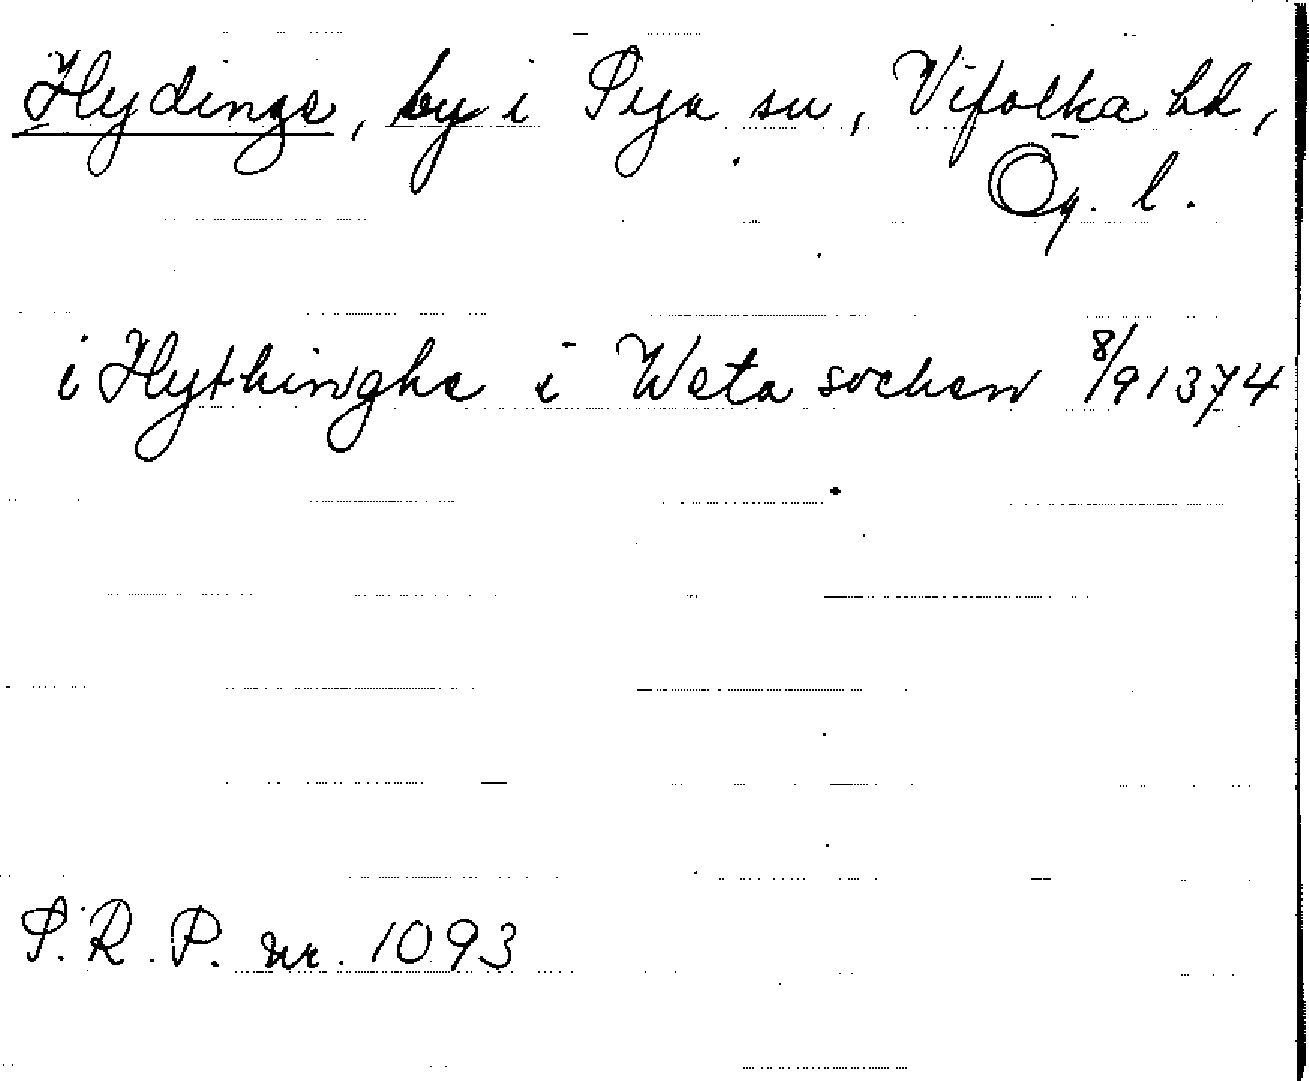 Hydinge, by i Sya sn, Vifolka hd,
Ög. l.
i Hythinghe i Weta sochen 8/9 1374
S.R.P. nr. 1093